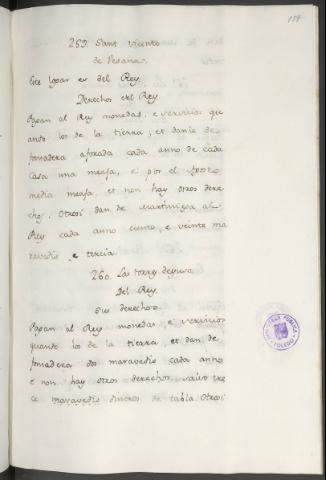 159
259 Sant Vicente
de Pesana.
Este logar es del Rey.
Derechos del Rey.
Pagan al Rey monedas, e servicios qu
ando los de la tierra, et danle de
fumadera aforada cada anno de cada
Casa una meaja, e por el
media meaja, et non hay otros dere
chos. Otrosi dan de martiniega al
Rey cada anno ciento, e veinte ma
ravedis, e tercia.
260 Las
del Rey.
sus derechos.
Pagan al Rey monedas, e servicios
quando los de la tierra, et dan de
fumadera dos maravedis cada anno
e non hay otros derechos, salvo tre
ce maravedis dineros de tabla. Otrosi
BIBLIOTECA PUBLICA
TOLEDO